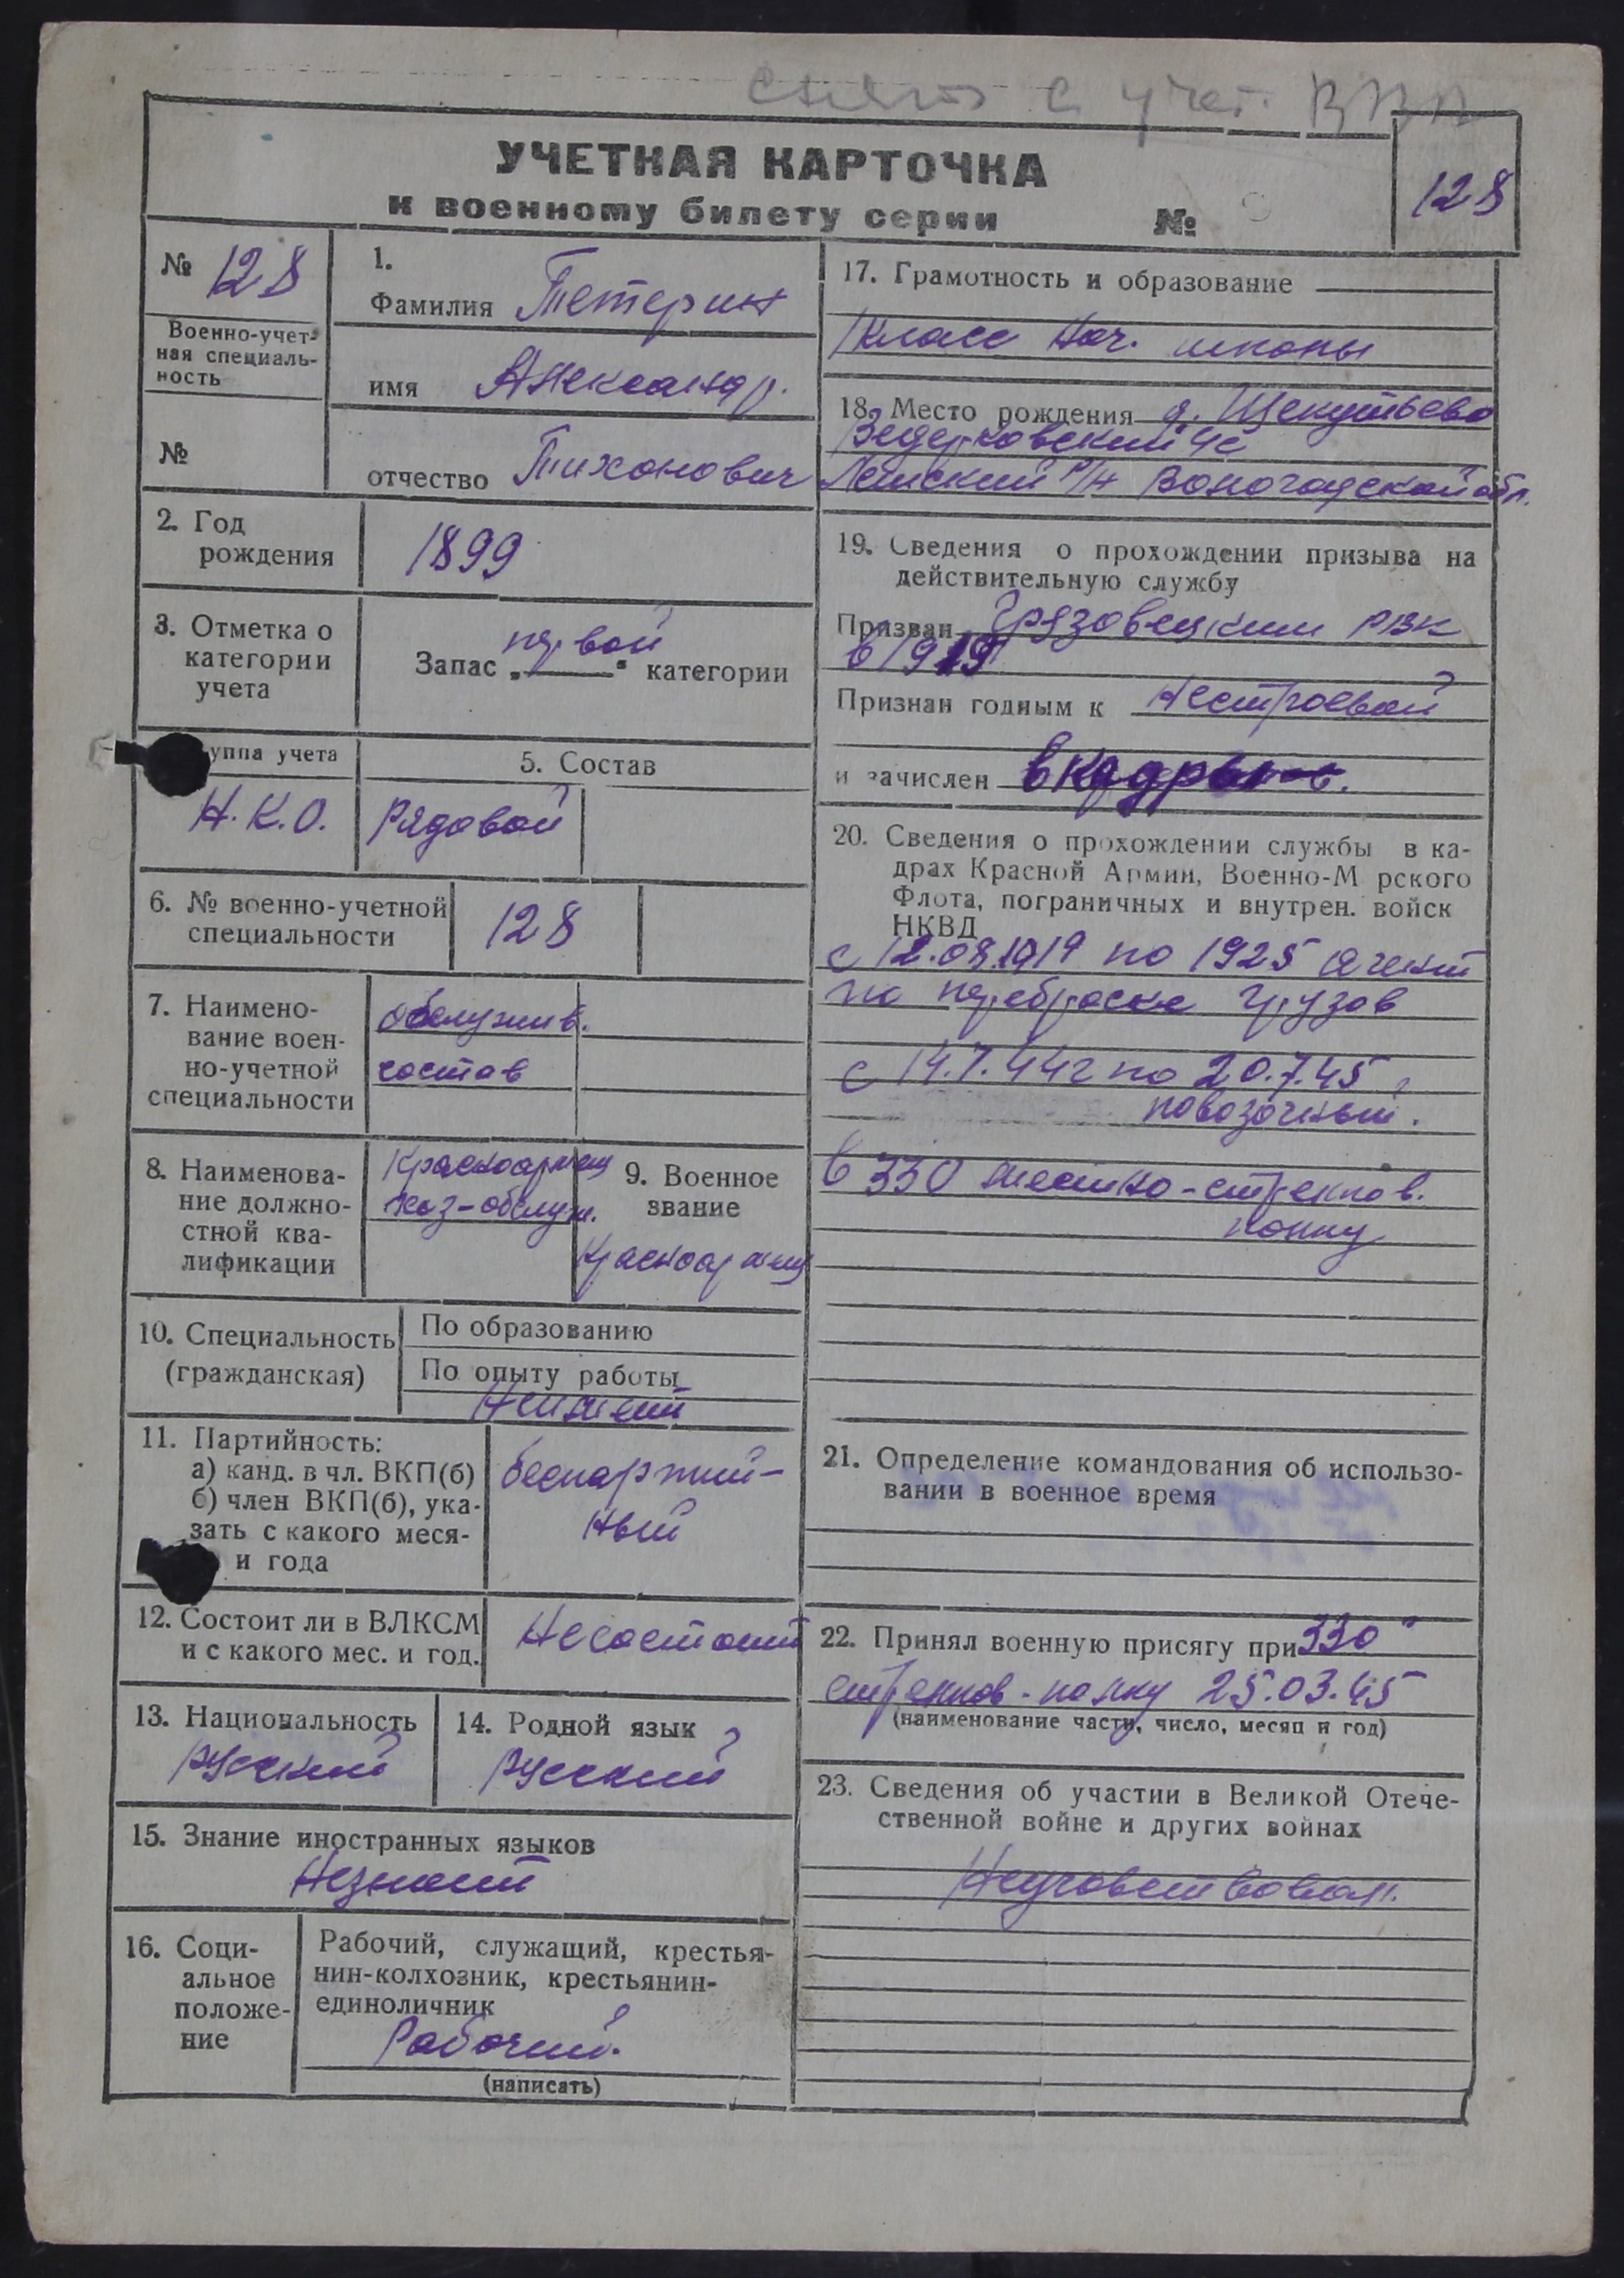 снят с учет.
УЧЕТНАЯ КАРТОЧКА
к военному билету серии №
128
№ 128
Военно-учет-
ная специаль-
ность
№
1.
Фамилия Тетерин
имя Александр.
отчество Тихонович
2. Год
рождения
1899
3. Отметка о
категории
учета
Запас „первой“ категории
уппа учета
Н.К.О.
5. Состав
Рядовой
6. № военно-учетной
специальности
128
7. Наимено-
вание воен-
но-учетной
специальности
обслужив.
состав
8. Наименова-
ние должно-
стной ква-
лификации
Красноармеец
хоз-обслуж.
9. Военное
звание
Красноармеец
10. Специальность
(гражданская)
По образованию
По опыту работы
Неимеет
11. Партийность:
а) канд. в чл. ВКП(б)
б) член ВКП(б), ука-
зать с какого меся-
и года
беспартий-
ный
12. Состоит ли в ВЛКСМ
и с какого мес. и год.
Несостоит
13. Национальность
русский
14. Родной язык
русский
15. Знание иностранных языков
Незнает
16. Соци-
альное
положе-
ние
Рабочий, служащий, крестья-
нин-колхозник, крестьянин-
единоличник
Рабочий.
(написать)
17. Грамотность и образование
1 класс Нач. школы
18. Место рождения д. Щекутьево
Ведерковский с/с
р/н Вологодской обл.
19. Сведения о прохождении призыва на
действительную службу
Призван Грязовецким РВК
в 1919
Признан годным к Нестроевой
и зачислен в кадры
20. Сведения о прохождении службы в ка-
драх Красной Армии, Военно-М рского
Флота, пограничных и внутрен. войск
НКВД
с 12.08.1919 по 1925 агент
по переброске грузов
с 14.7.44г по 20.7.45
повозочный.
в 330 -стрелков.
полку
21. Определение командования об использо-
вании в военное время
22. Принял военную присягу при 330
стрелков-полку 25.03.45
(наименование части, число, месяц и год)
23. Сведения об участии в Великой Отече-
ственной войне и других войнах
Неучавствовал.